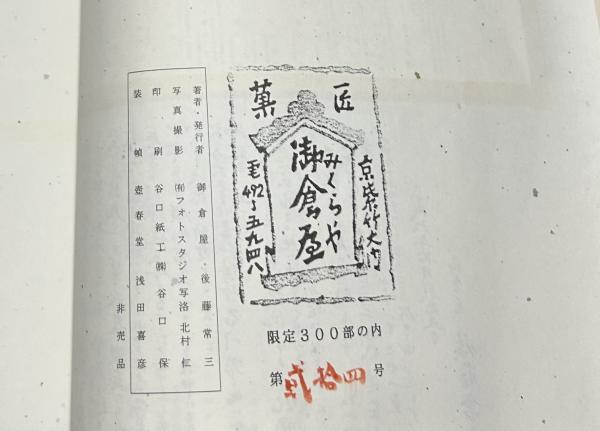 菓匠
京紫竹大門
みくらや
御倉屋
492
五九四八
限定300部の内
第弐拾四号
著者・発行者 御倉屋 後藤常三
写真撮影 ㈲フォトスタジオ写洛 北村仁
印刷 谷口紙工㈱ 谷口保
装幀 壺春堂 浅田喜彦
非売品